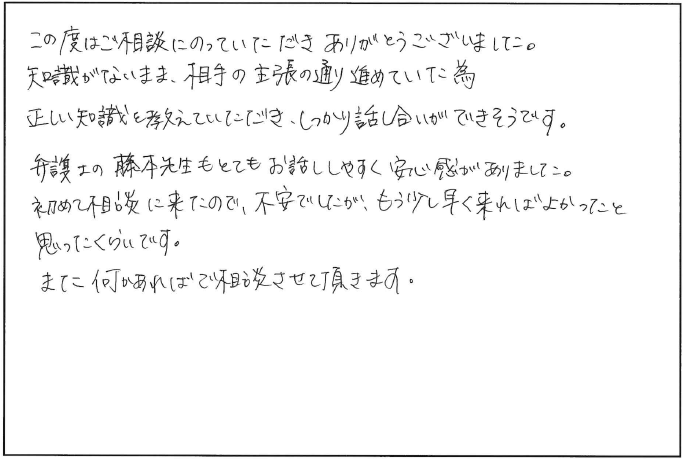 この度はご相談にのっていただき ありがとうございました。
知識がないまま、相手の主張の通り進めていた為
正しい知識を教えていただき、しっかり話し合いができそうです。
弁護士の藤本先生もとてもお話ししやすく安心感がありました。
初めて相談に来たので、不安でしたが、もう少し早く来ればよかったと
思ったくらいです。
また何かあればご相談させて頂きます。